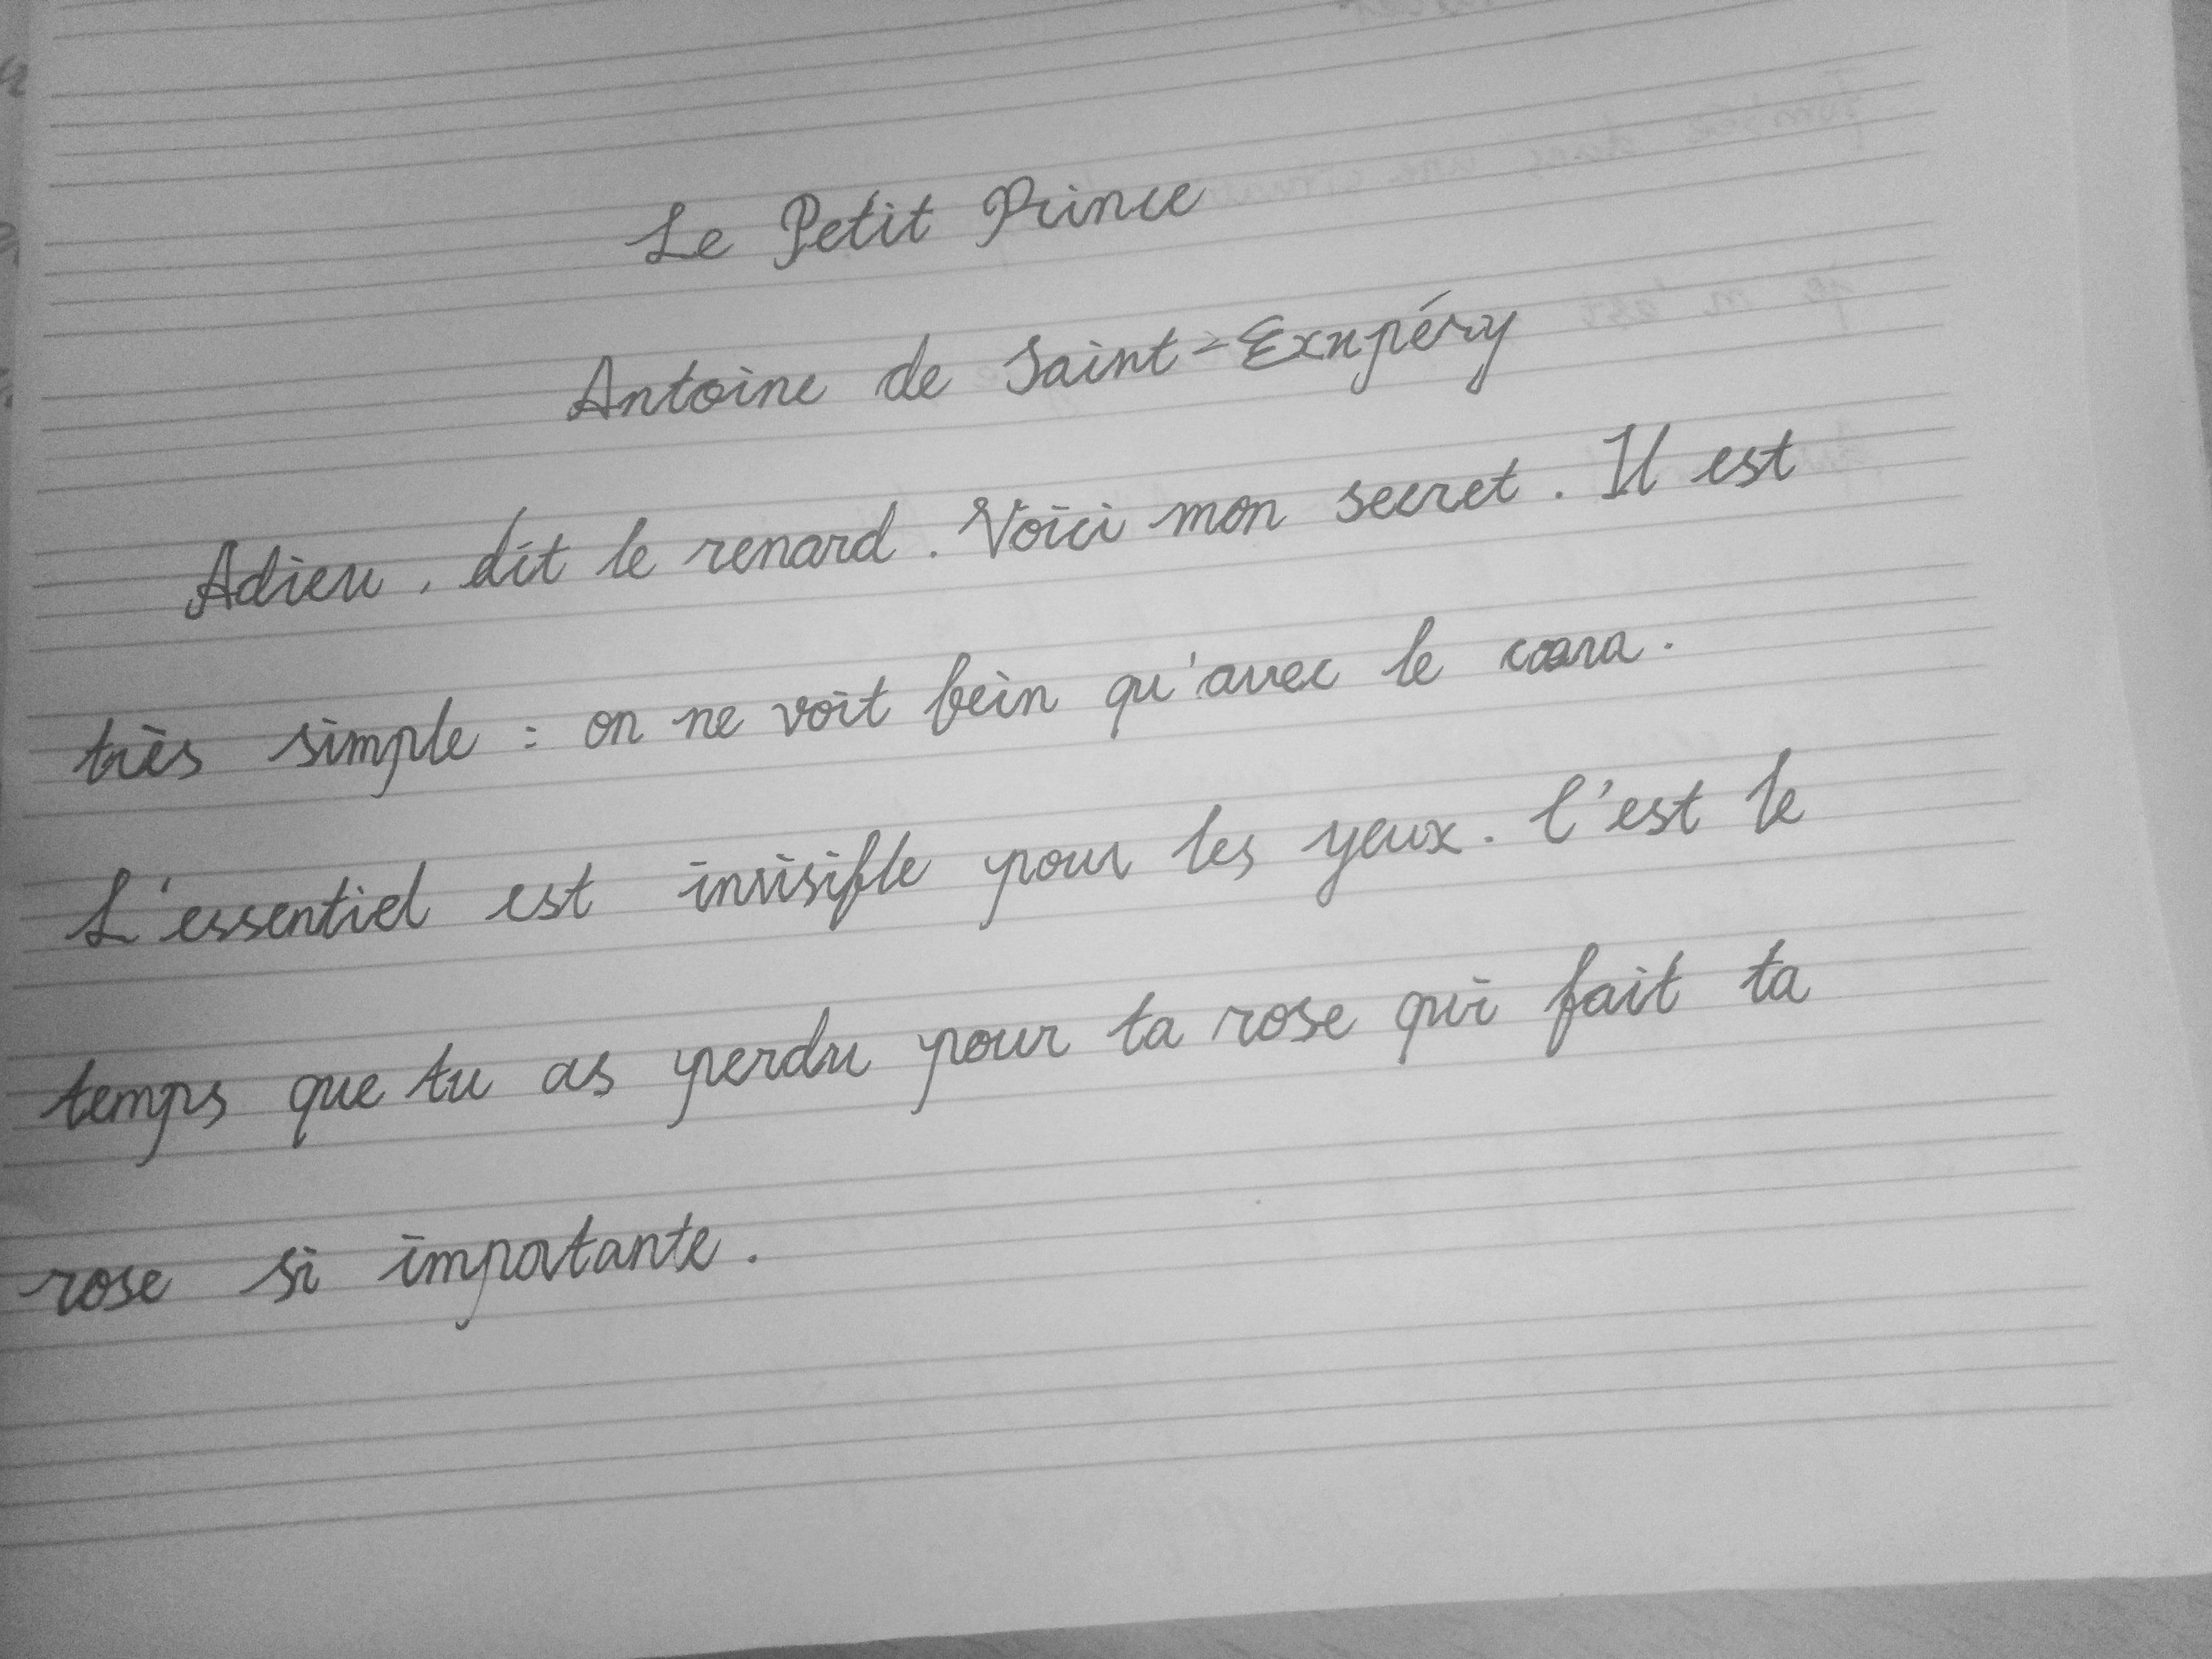 Le Petit Prince
Antoine de Saint-Exupéry
Adieu, dit le renard. Voici mon secret. Il est
très simple : on ne voit bein qu'avec le cœur.
L'essentiel est invisible pour les yeux. C'est le
temps que tu as perdu pour ta rose qui fait ta
rose si importante.